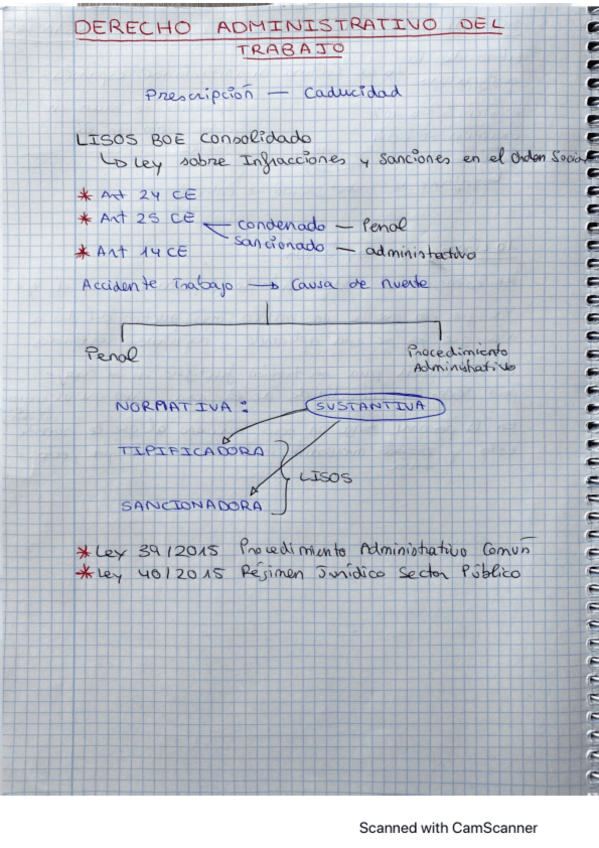 DERECHO ADMINISTRATIVO DEL
TRABAJO
Prescripción — Caducidad
LISOS BOE Consolidado
↳ Ley sobre Infracciones y Sanciones en el Orden Social
* Art 24 CE
* Art 25 CE
condenado — Penal
sancionado — administrativo
* Art 14 CE
Accidente Trabajo → Causa de muerte
Penal
Procedimiento
Administrativo
NORMATIVA: SUSTANTIVA
TIPIFICADORA
LISOS
SANCIONADORA
* Ley 39/2015 Procedimiento Administrativo Común
* Ley 40/2015 Régimen Jurídico Sector Público
Scanned with CamScanner